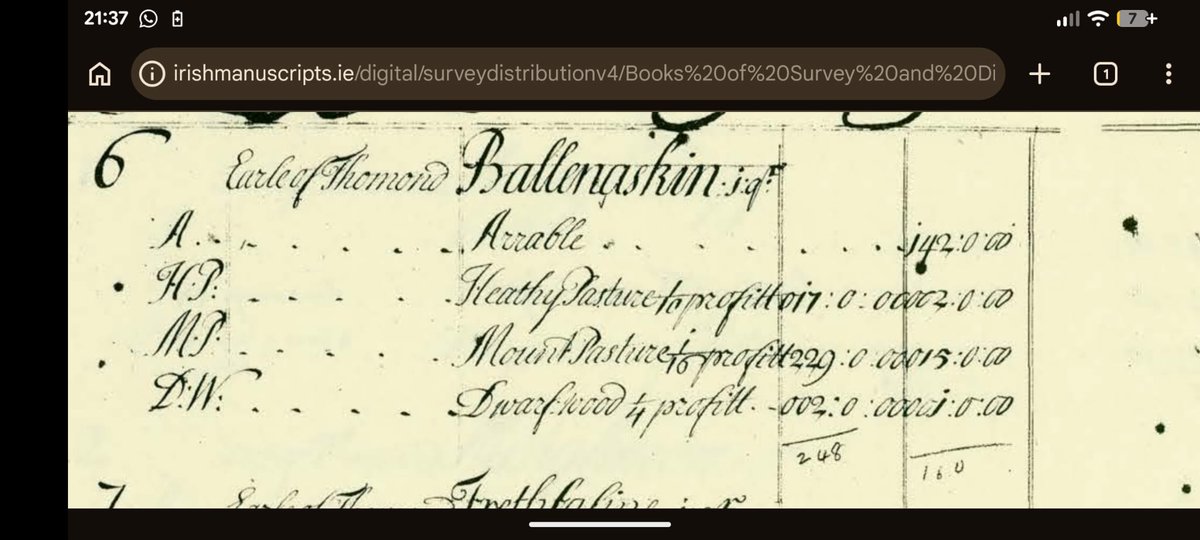 21:37
irishmanuscripts.ie/digital/surveydistributionv4/Books%20of%20Survey%20and%20Di
1
7+
6 Earle of Thomond Ballengskin: j: qr
A. Arrable j42:0:00
H:P: Heathy Pasture 1/10 profitt 0j7:0:00 002:0:00
M:P: Mount Pasture 1/16 profitt 229:0:00 0j5:0:00
D:W: Dwarf wood 1/4 profitt 002:0:00 00j:0:00
248 160
7 Earle of